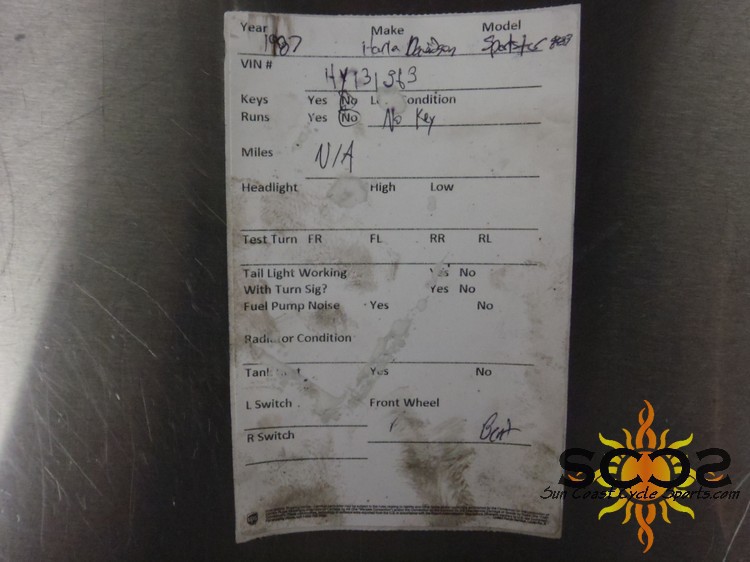 Year Make Model
1987 Harla Davidson Sportster 883
VIN #
Keys Yes No Condition
Runs Yes No No Key
Miles N/A
Headlight High Low
Test Turn FR FL RR RL
Tail Light Working Yes No
With Turn Sig? Yes No
Fuel Pump Noise Yes No
Radiator Condition
Tank Yes No
L Switch Front Wheel
R Switch Bent
SCCS
Sun Coast Cycle Sports.com